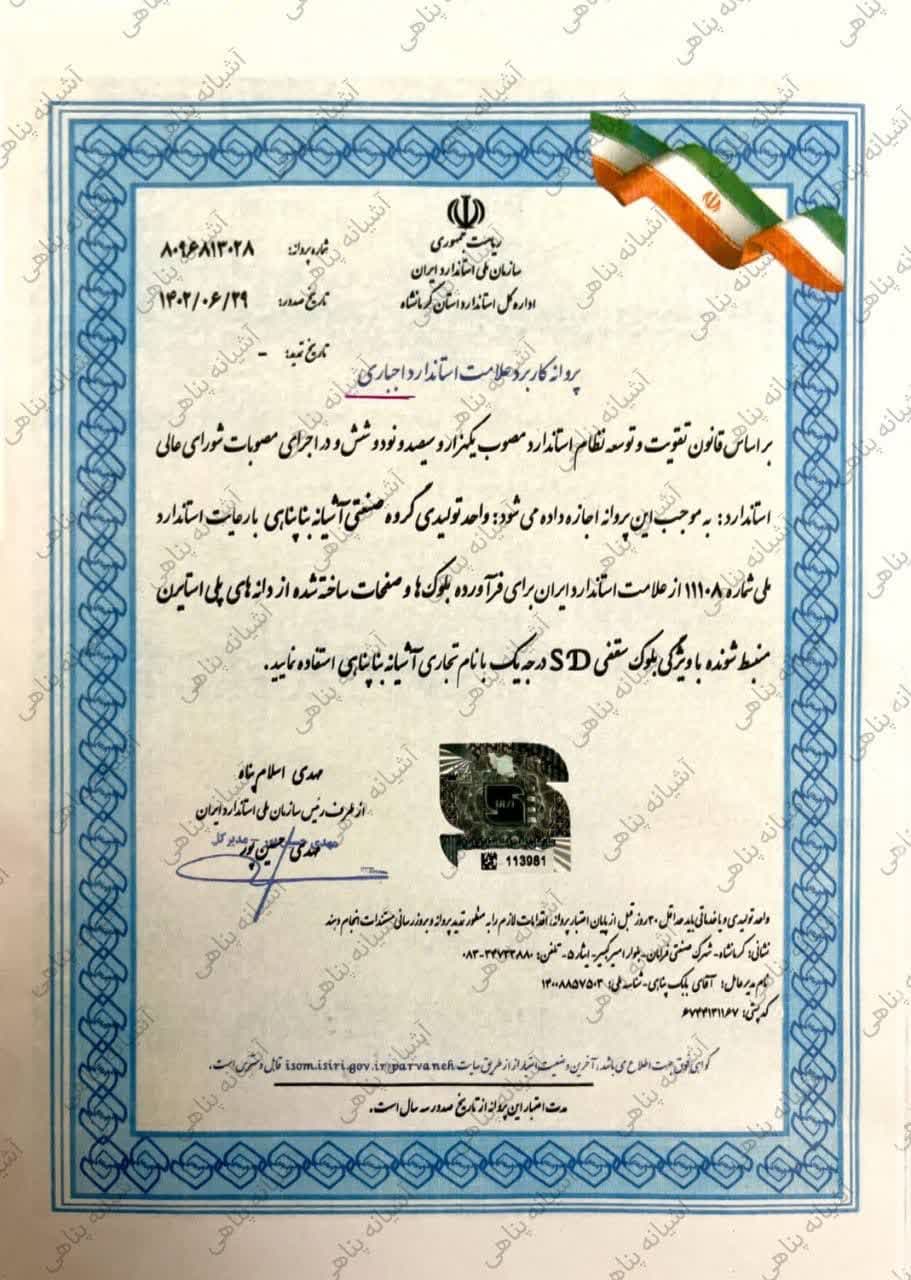 ریاست جمهوری
سازمان ملی استاندارد ایران
اداره کل استاندارد استان کرمانشاه
شماره پروانه: ۸۰۹۶۸۱۳۰۲۸
تاریخ صدور: ۱۴۰۲/۰۶/۲۹
تاریخ تمدید: -
پروانه کاربرد علامت استاندارد اجباری
بر اساس قانون تقویت و توسعه نظام استاندارد مصوب یکهزار و سیصد و نود و شش و در اجرای مصوبات شورای عالی
استاندارد: به موجب این پروانه اجازه داده می شود: واحد تولیدی گروه صنعتی آشیانه بنا پناهی با رعایت استاندارد
ملی شماره ۱۱۱۰۸ از علامت استاندارد ایران برای فرآورده بلوک ها و صفحات ساخته شده از دانه های پلی استایرن
منبسط شونده با ویژگی بلوک سقفی SD درجه یک با نام تجاری آشیانه بنا پناهی استفاده نمایید.
مهدی اسلام پناه
از طرف رئیس سازمان ملی استاندارد ایران
مهدی حسین پور
113981
واحد تولیدی و یا خدماتی باید حداقل ۳۰ روز قبل از پایان اعتبار پروانه، اقدامات لازم را به منظور تمدید پروانه و بروزرسانی مستندات انجام دهند
نشانی: کرمانشاه- شهرک صنعتی فرامان- بلوار امیرکبیر- ایثار ۵- تلفن: ۰۸۳-۳۴۷۳۳۸۸۰
نام مدیرعامل: آقای بابک پناهی- شناسه ملی: ۱۴۰۰۸۸۵۷۵۰۳
کدپستی: ۶۷۴۴۱۳۱۱۶۷
گواهی فوق جهت اطلاع می باشد، آخرین وضعیت اعتبار از طریق سایت isom.isiri.gov.ir/parvaneh قابل دسترس است.
مدت اعتبار این پروانه از تاریخ صدور سه سال است.
آشیانه پناهی